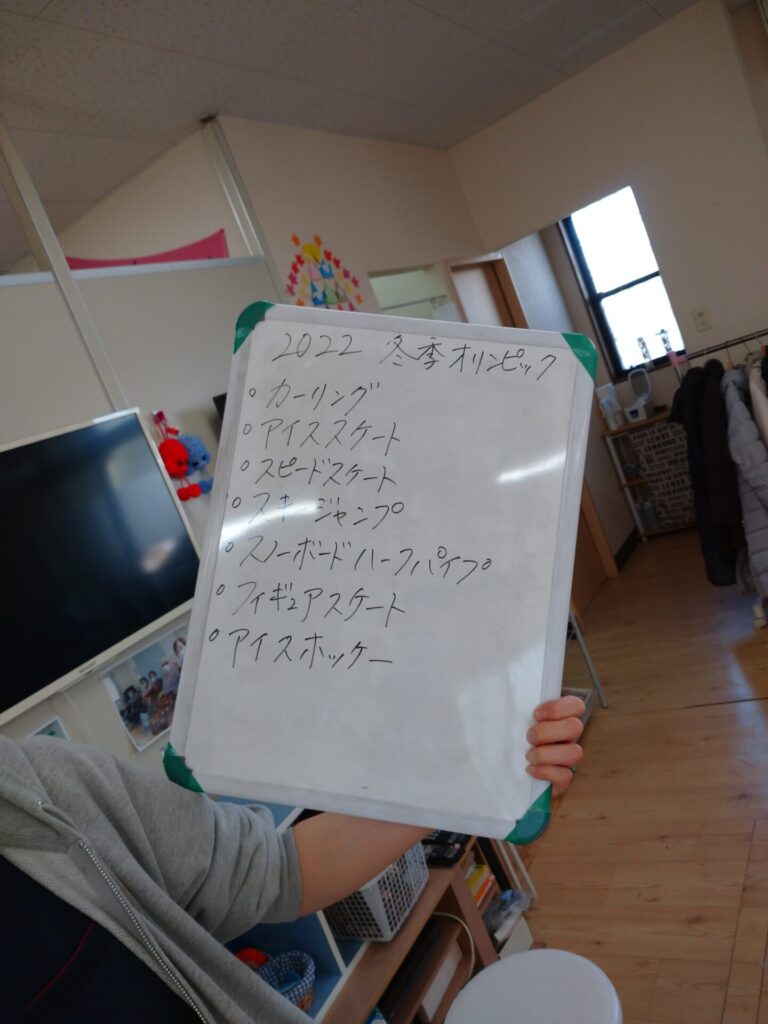 2022 冬季オリンピック
○ カーリング
○ アイススケート
○ スピードスケート
○ スキージャンプ
○ スノーボードハーフパイプ
○ フィギュアスケート
○ アイスホッケー